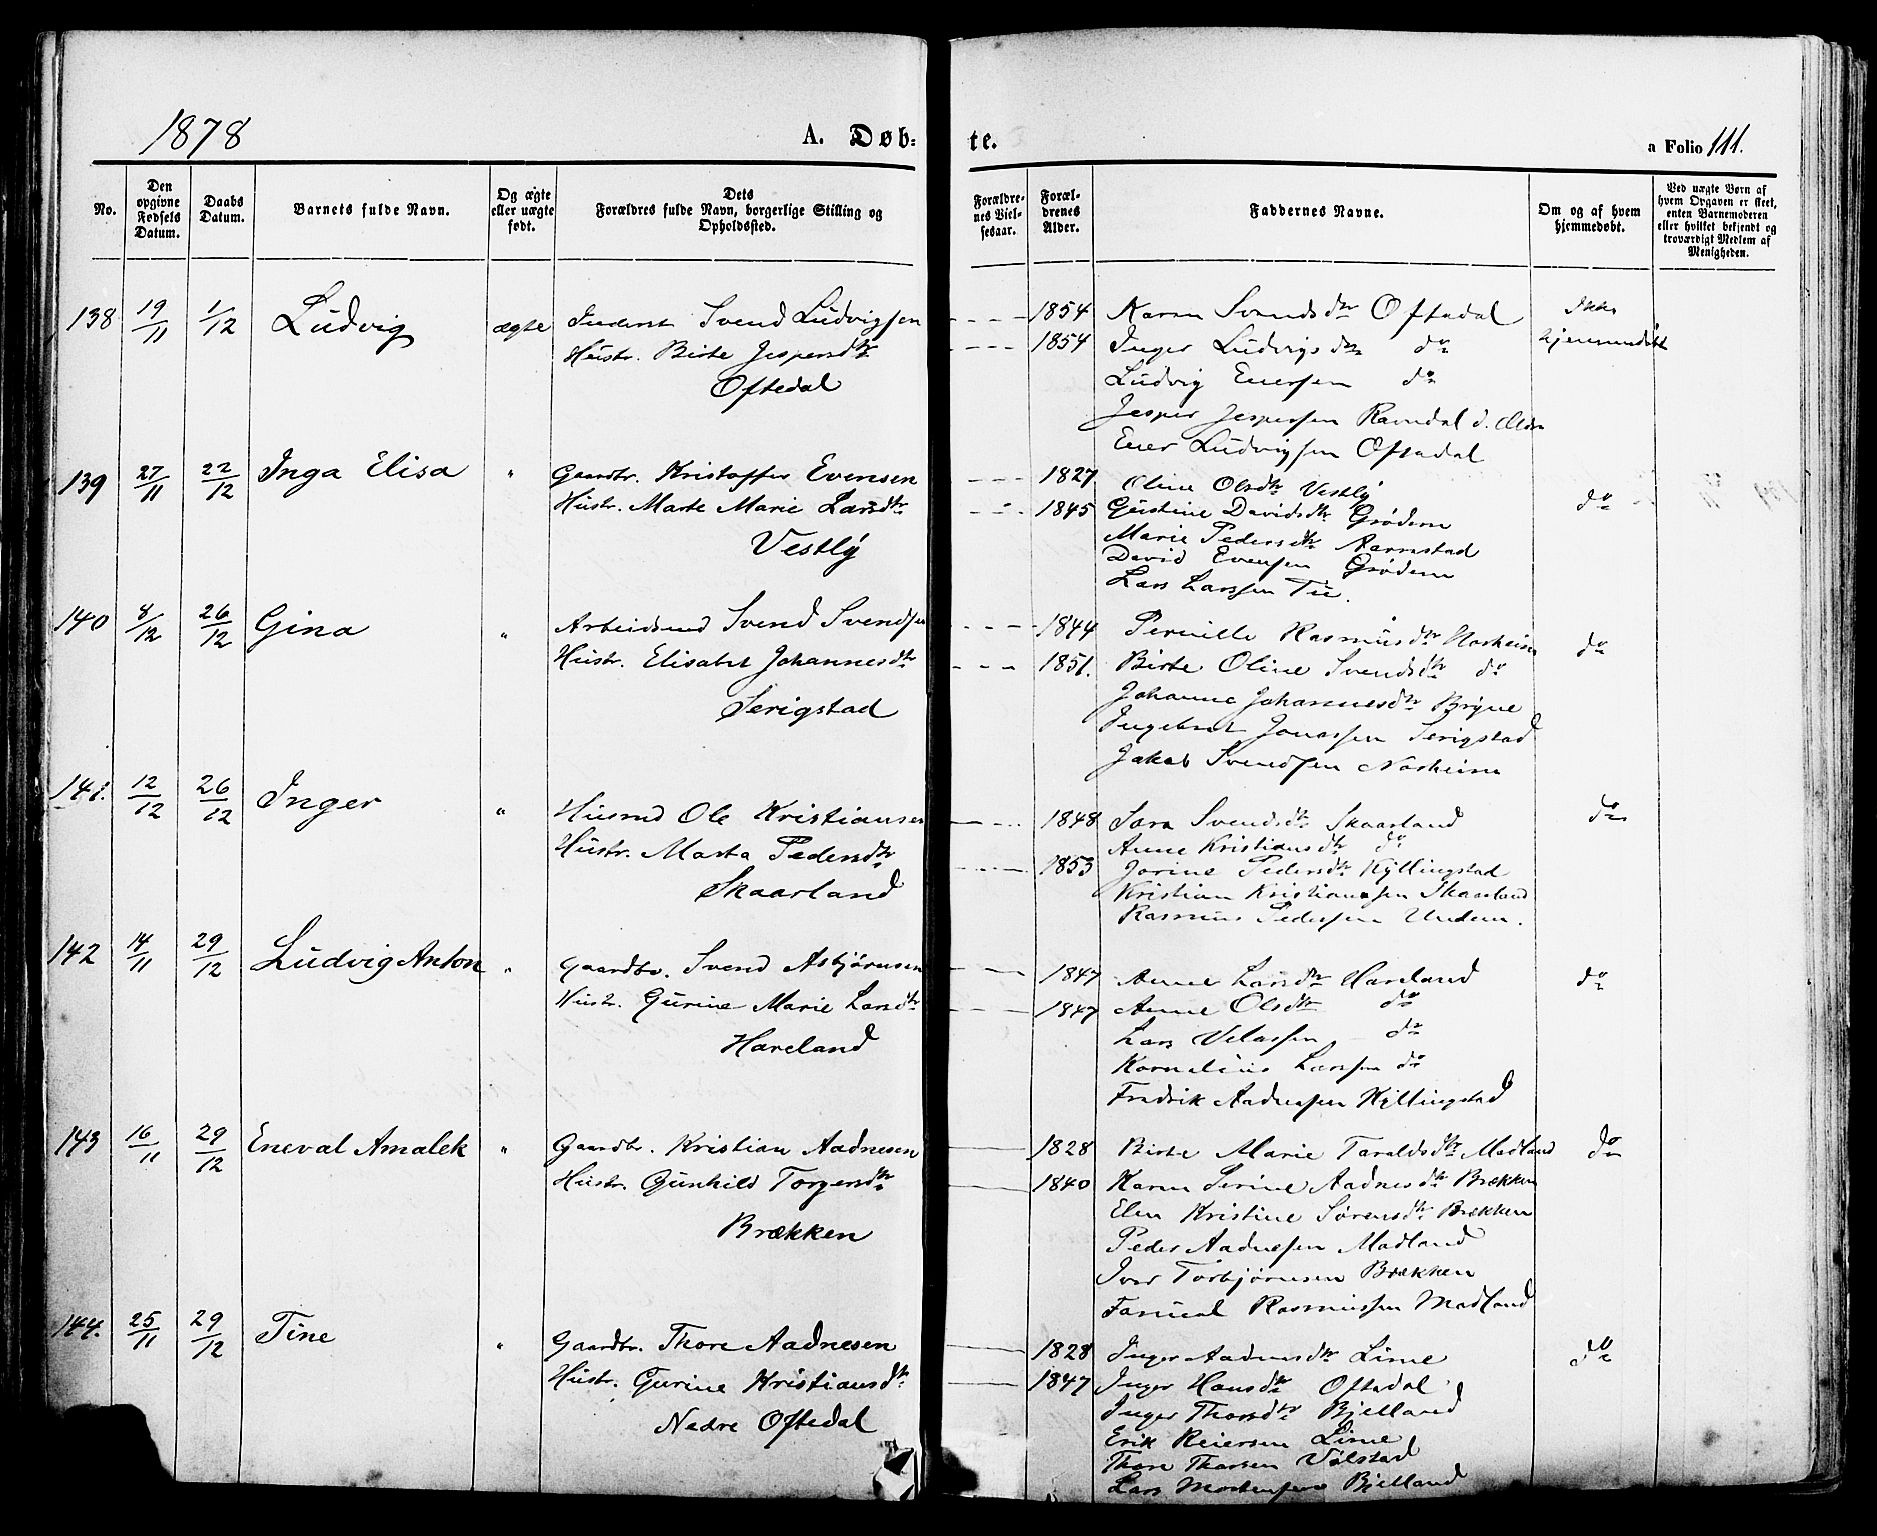 1878 A. Døb-
te. a Folio 111.
No. Den opgivne Fødsels Datum. Daabs Datum. Barnets fulde Navn. Og ægte eller uægte født. Dets Forældres fulde Navn, borgerlige Stilling og Opholdssted.
Forældrenes Vielsesaar. Forældrenes Alder. Faddernes Navne. Om og af hvem hjemmedøbt. Ved uægte Børn af hvem Opgaven er skeet, enten Barnemoderen eller hvilket bekjendt og troværdigt Medlem af Menigheden.
138 19/11 1/12 Ludvig ægte Inderst Svend Ludvigsen
Hustr. Birte Jespersdtr
Oftedal
1854 Karen Svendsdtr Oftedal Ikke
1854 Inger Ludvigsdtr do hjemmedøbt
Ludvig Enersen do
Jesper Jespersen Ravndal d. Ældre
Ener Ludvigsen Oftedal
139 27/11 22/12 Inga Elisa " Gaardbr. Kristoffer Evensen
Hustr. Marte Marie Larsdtr
Vestly
1827 Oline Olsdtr Vestly
1845 Gustine Davidsdtr Grødem do
Marie Pedersdtr Aarrestad
David Evensen Grødem
Lars Larssen Tu.
140 8/12 26/12 Gina " Arbeidsmd Svend Svendsen
Hustr. Elisabet Johannesdtr
Serigstad
1844 Pernille Rasmusdtr Norheim do
1851. Birte Oline Svendsdtr do
Johanna Johannesdtr Bryne
Ingebret Jonassen Serigstad
Jakob Svendsen Norheim
141. 12/12 26/12 Inger " Husmd Ole Kristiansen
Hustr. Marta Pedersdtr
Skaarland
1848 Sara Svendsdtr Skaarland do
Anne Kristiansdtr do
1853 Jorine Pedersdtr Kyllingstad
Kristian Kristiansen Skaarland
Rasmus Pedersen Undem.
142 14/11 29/12 Ludvig Anton " Gaardbr. Svend Asbjørnsen
Hustr. Gurine Marie Larsdtr
Hareland
1847 Anne Larsdtr Hareland do
1847 Anne Olsdtr do
Lars Velassen do
Kornelius Larssen do
Fredrik Aadnesen Kyllingstad
143 16/11 29/12 Eneval Amalek " Gaardbr. Kristian Aadnesen
Hustr. Gunhild Torgersdtr
Brækken
1828 Birte Marie Taraldsdtr Madland do
1840 Karen Serine Aadnesdtr Brækken
Elen Kristine Sørensdtr Brækken
Peder Aadnesen Madland
Iver Torbjørnsen Brækken
Samuel Rasmussen Madland
144. 25/11 29/12 Tine " Gaardbr. Thore Aadnesen
Hustr. Gurine Kristiansdtr
Nedre Oftedal
1828 Inger Aadnesdtr Lime do
1847 Inger Hansdtr Oftedal
Inger Thorsdtr Bjelland
Erik Reiersen Lime
Thore Thorsen Vølstad
Lars Mortensen Bjelland